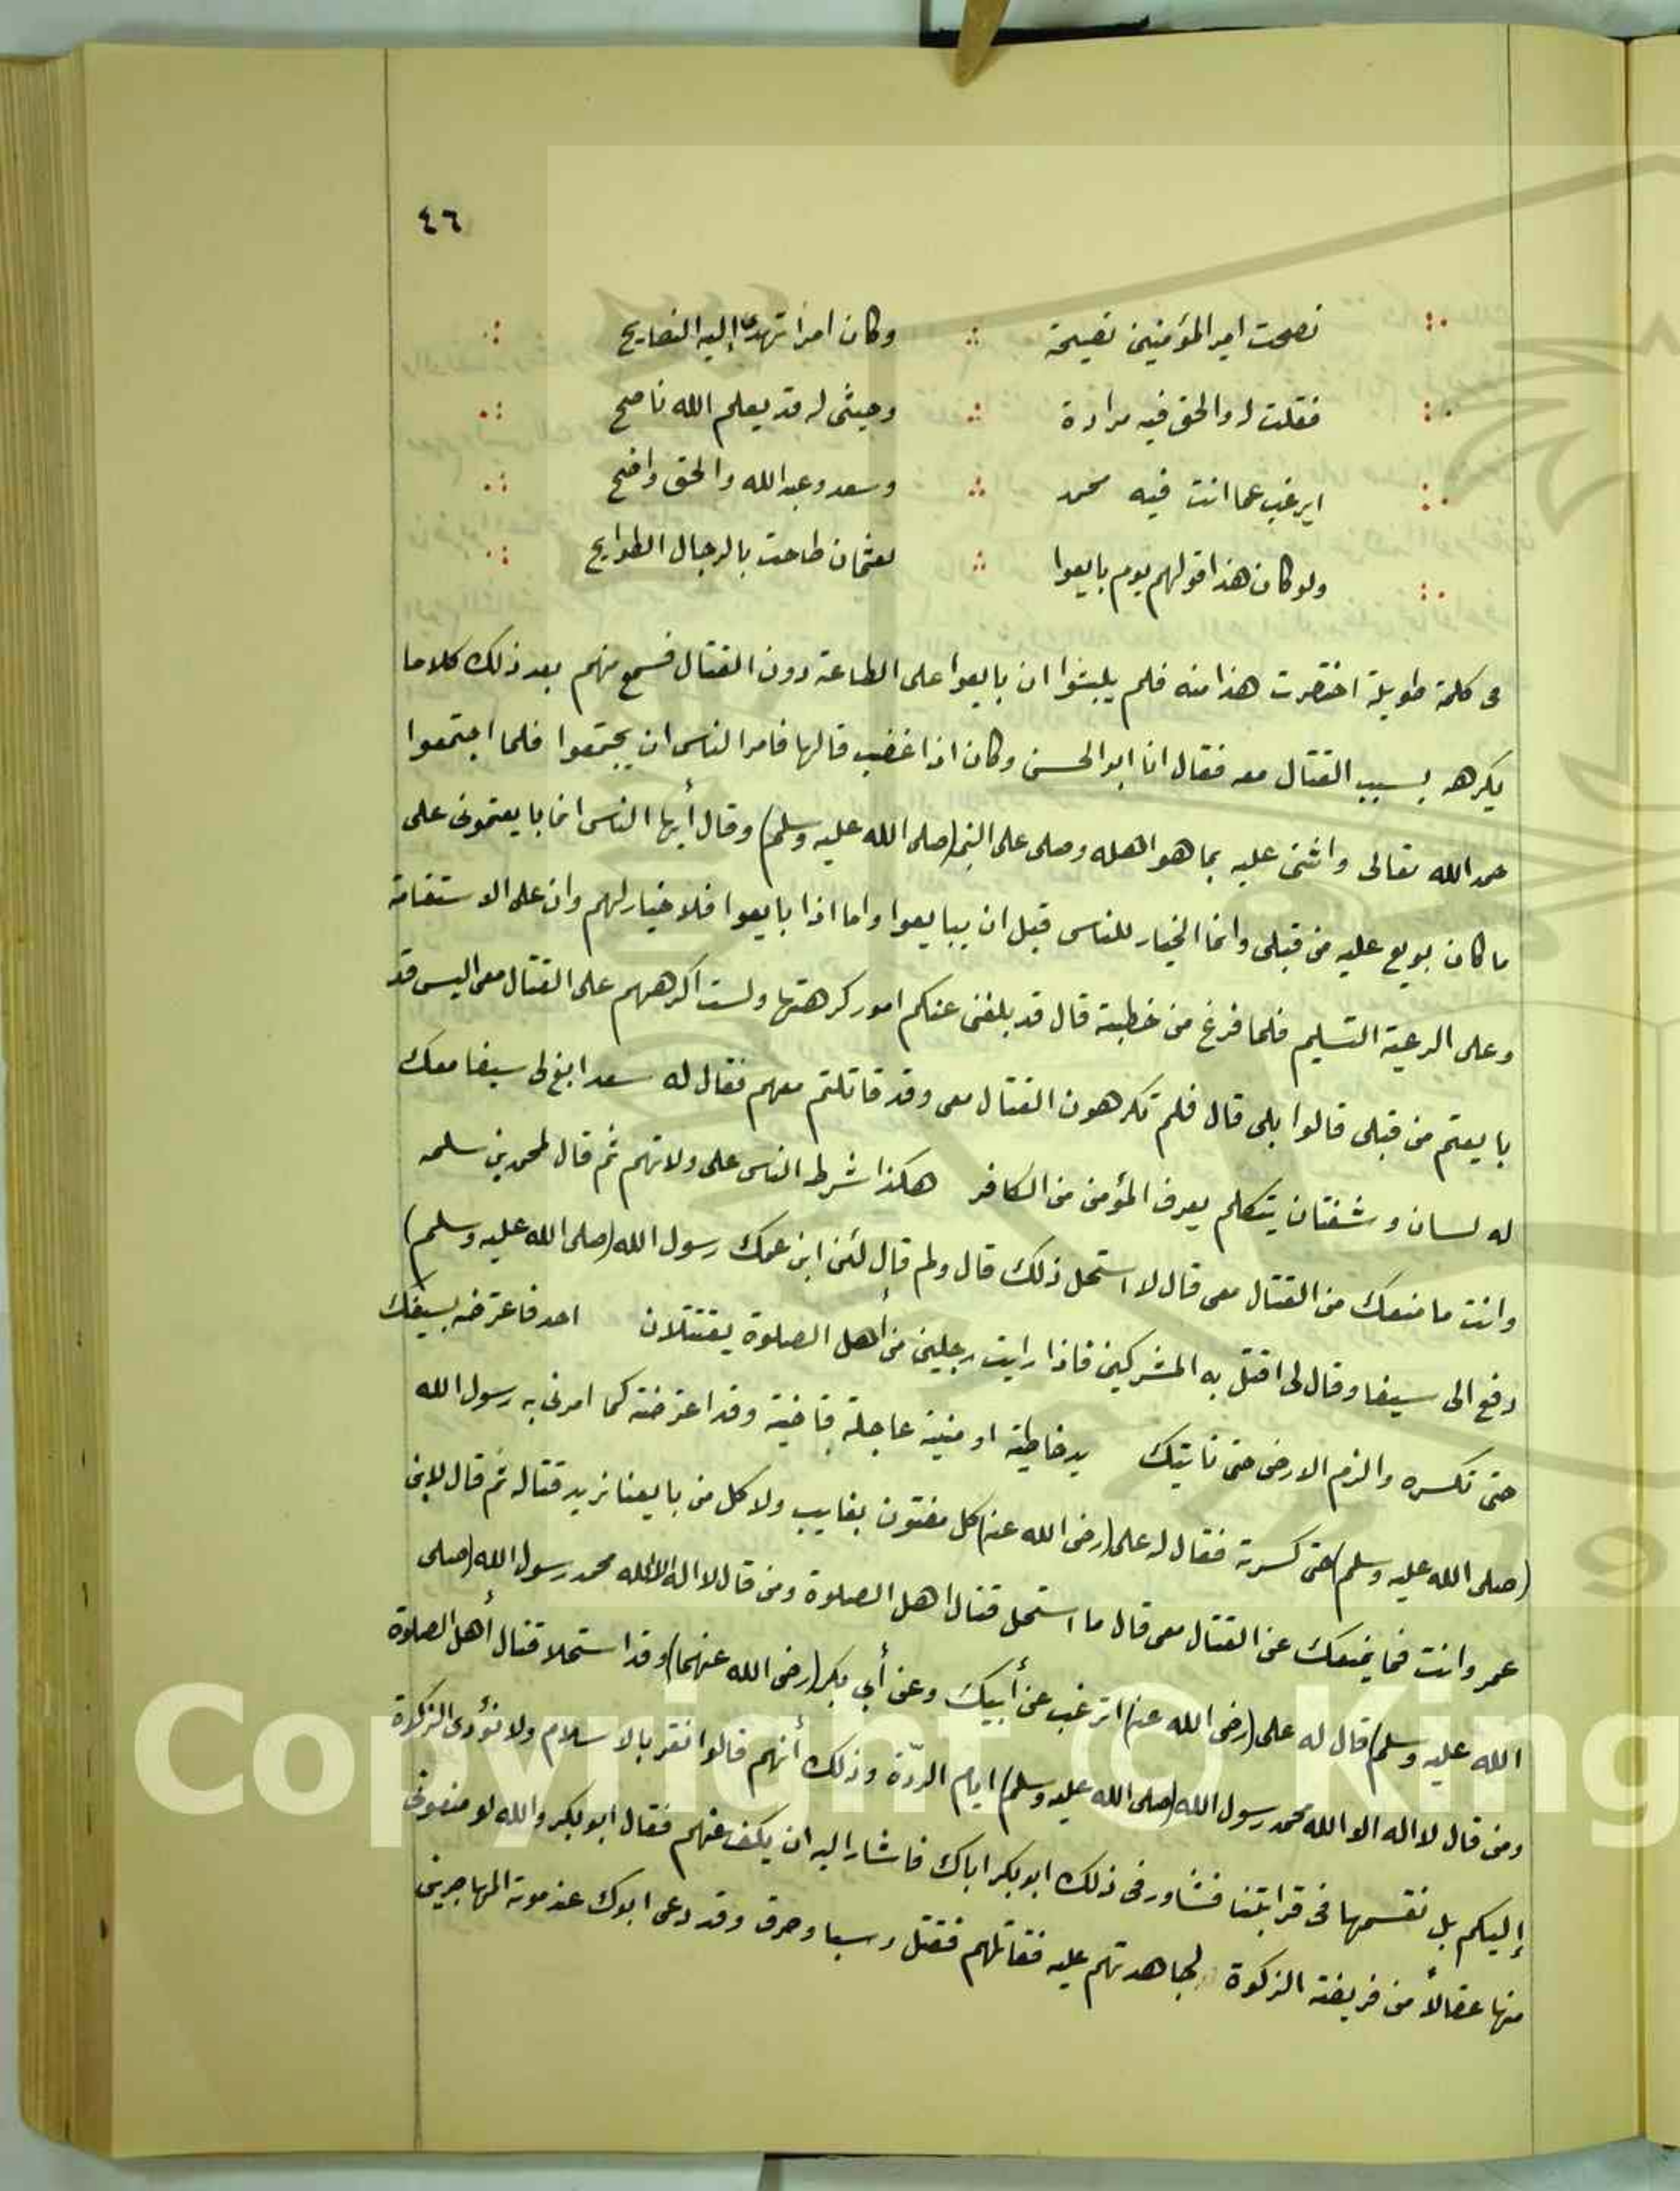 ٤٦
نصحت امير المؤمنين نصيحة وكان امرا تهدى إليه النصايح
فقلت له والحق فيه مرادة وحيثى له قد يعلم الله ناصح
ايرغب عما انت فيه محمد وسعد وعبد الله والحق واضح
ولو كان هذا قولهم يوم بايعوا لعثمان طاحت بالرجال الطوايح
فى كلمة طويلة اختصرت هذا منه فلم يلبثوا ان بايعوا على الطاعة دون القتال فسمع منهم بعد ذلك كلاما
يكرهه بسبب القتال معه فقال انا ابو الحسن وكان اذا غضب قالها فامر الناس ان يجتمعوا فلما اجتمعوا
حمد الله تعالى واثنى عليه بما هو اهله وصلى على النبى (صلى الله عليه وسلم) وقال أيها الناس انما بايعتمونى على
ما كان بويع عليه من قبلى وانما الخيار للناس قبل ان يبايعوا واما اذا بايعوا فلا خيار لهم وان على الاستقامة
وعلى الرعية التسليم فلما فرغ من خطبته قال قد بلغنى عنكم امور كرهتها ولست اكرههم على القتال معى اليس قد
بايعتم من قبلى قالوا بلى قال فلم تكرهون القتال معى وقد قاتلتم معهم فقال له سعد ابغ لى سيفا معك
له لسان وشفتان يتكلم يعرف المؤمن من الكافر هكذا شرط الناس على ولاتهم ثم قال لمحمد بن سلمه
وانت ما منعك من القتال معى قال لا استحل ذلك قال ولم قال لئن ابن عمك رسول الله (صلى الله عليه وسلم)
دفع الى سيفا وقال لى اقتل به المشركين فاذا رايت رجلين من أهل الصلوة يقتتلان احد فاعترضه بسيفك
حتى تكسره والزم الارض حتى تاتيك يد خاطية او منية عاجلة قاضية وقد اعترضته كما امرنى به رسول الله
(صلى الله عليه وسلم) حتى كسرته فقال له على (رضى الله عنه) كل مفتون بغايب ولا كل من بايعنا نريد قتاله ثم قال لابن
عمر وانت فما يمنعك عن القتال معى قال ما استحل قتال اهل الصلوة ومن قال لا اله الا الله محمد رسول الله (صلى
الله عليه وسلم) قال له على (رضى الله عنه) اترغب عن أبيك وعن أبي بكر (رضى الله عنهما) وقد استحلا قتال أهل الصلوة
ومن قال لا اله الا الله محمد رسول الله (صلى الله عليه وسلم) ايام الردّة وذلك أنهم قالوا نقر بالاسلام ولا نؤدى الزكوة
إليكم بل نقسمها فى قرابتنا فشاور فى ذلك ابو بكر اباك فاشار اليه ان يكف عنهم فقال ابو بكر والله لو منعونى
منها عقالاً من فريضة الزكوة لجاهدتهم عليه فقاتلهم فقتل وسبا وحرق وقد دعى ابوك عند موته المهاجرين
Copyright © King